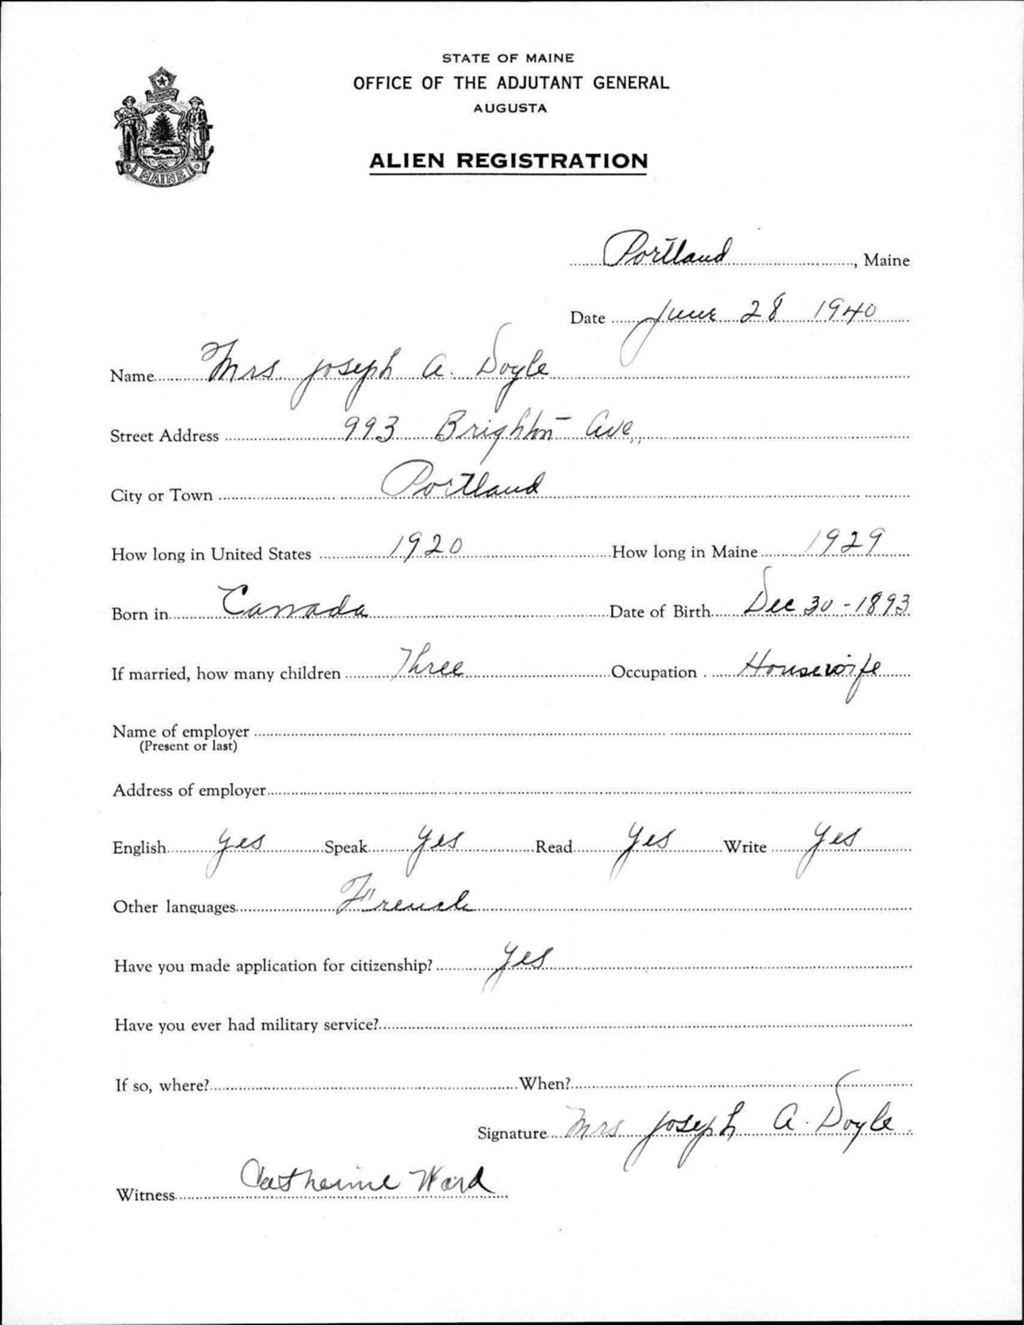 STATE OF MAINE
OFFICE OF THE ADJUTANT GENERAL
AUGUSTA
ALIEN REGISTRATION
MAINE
Portland, Maine
Date June 28 1940
Name Mrs Joseph A. Doyle
Street Address 993 Brighton Ave.,
City or Town Portland
How long in United States 1920 How long in Maine 1929
Born in Canada Date of Birth Dec 30 - 1893
If married, how many children Three Occupation Housewife
Name of employer
(Present or last)
Address of employer
English yes Speak yes Read yes Write yes
Other languages French
Have you made application for citizenship? yes
Have you ever had military service?
If so, where? When?
Signature Mrs Joseph A. Doyle
Witness Catherine Ward